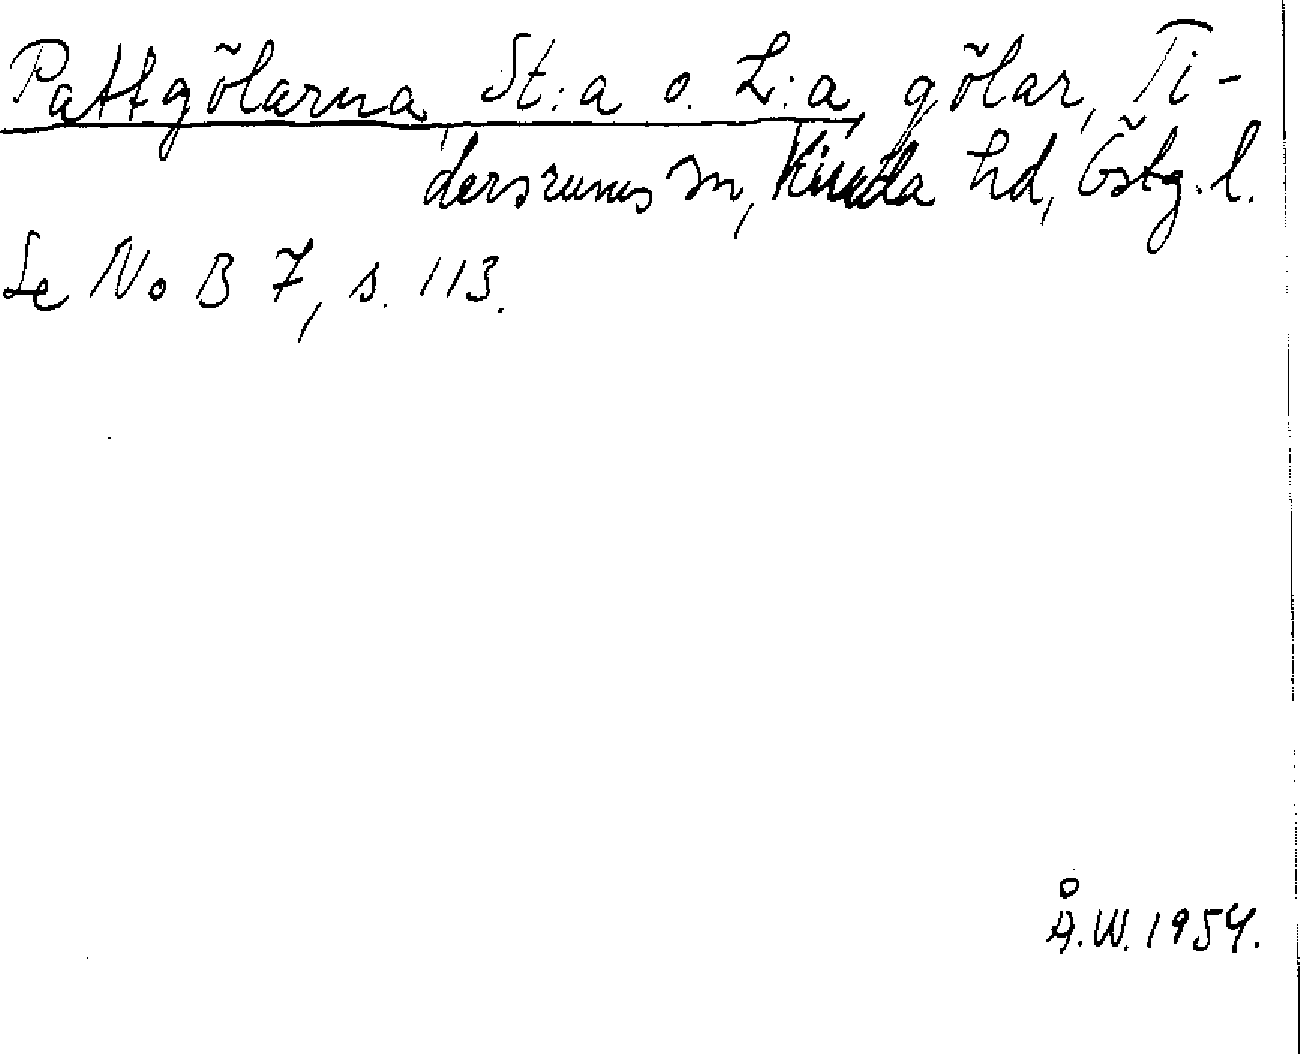 Pattgölarna, St:a o. L:a, gölar, Ti-
dersrums sn, Kinda hd, Östg. l.
Se NoB 7, s. 113.
Å.W. 1954.